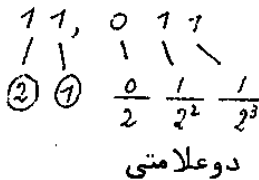 1 1, 0 1 1
② ① 0/2 1/2² 1/2³
دوعلامتی